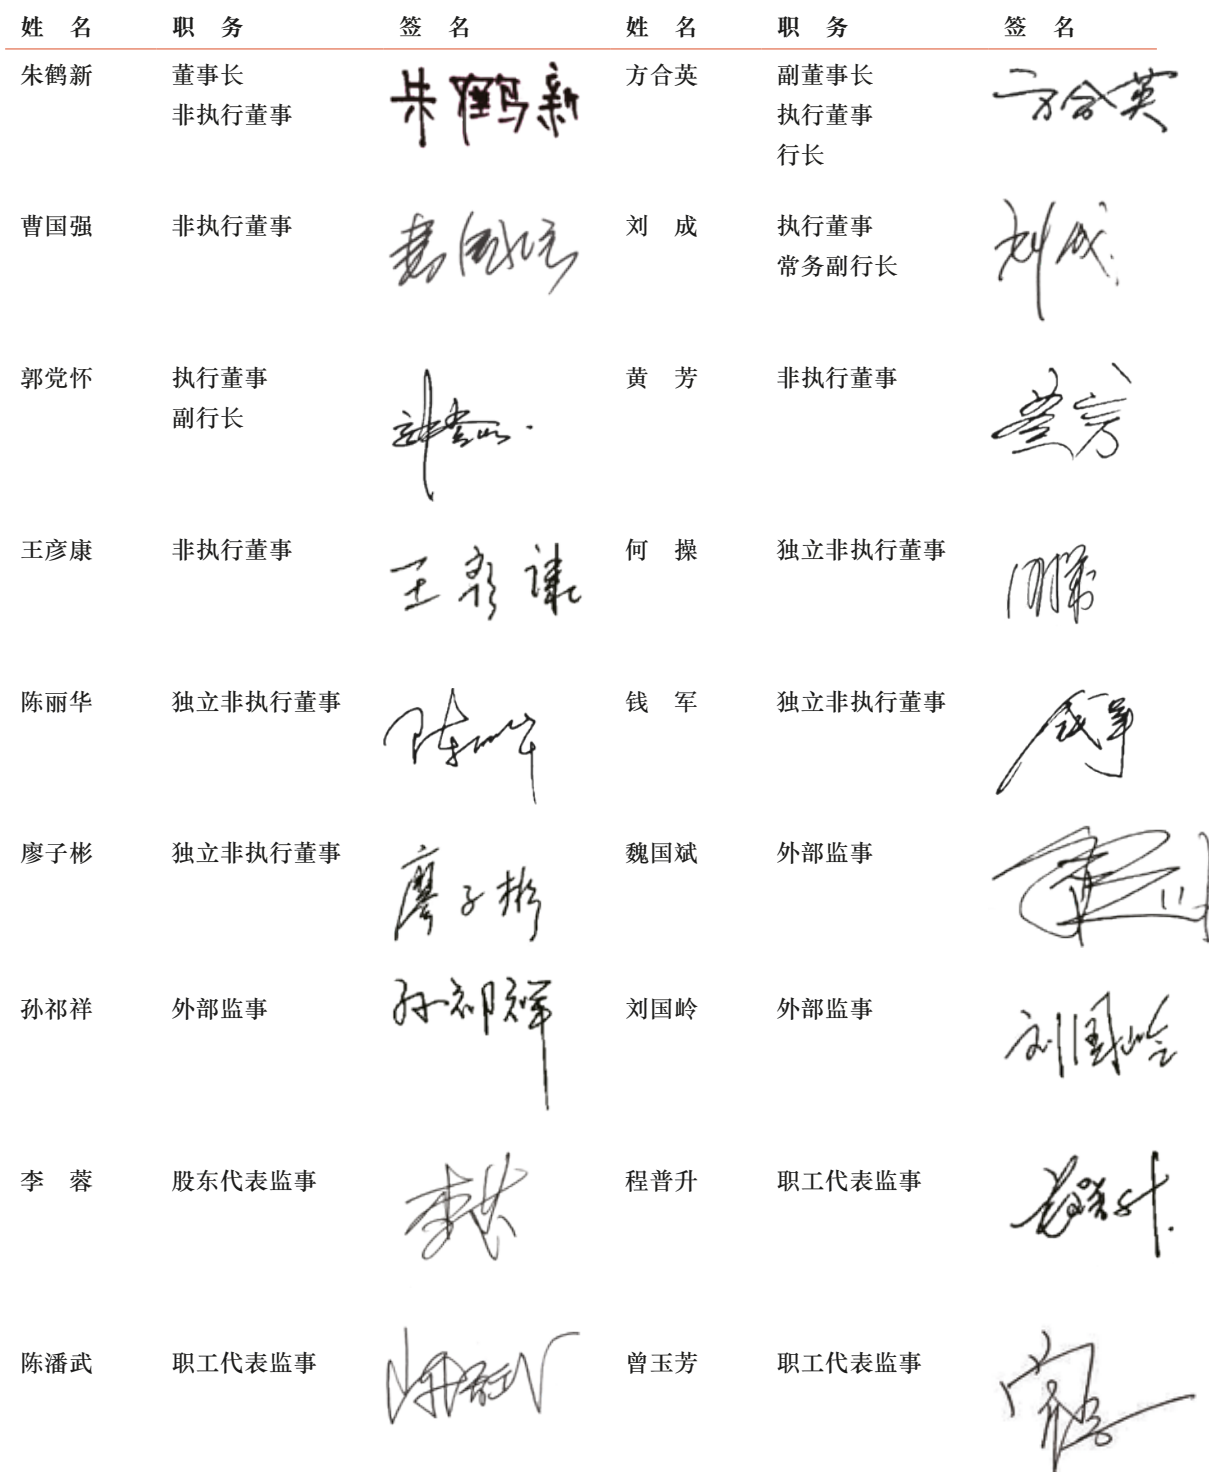 姓 名 职 务 签 名 姓 名 职 务 签 名
朱鹤新 董事长 朱鹤新 方合英 副董事长 方合英
非执行董事 执行董事
行长
曹国强 非执行董事 刘 成 执行董事 刘成
常务副行长
郭党怀 执行董事 黄 芳 非执行董事 黄芳
副行长
王彦康 非执行董事 王彦康 何 操 独立非执行董事
陈丽华 独立非执行董事 陈丽华 钱 军 独立非执行董事 钱军
廖子彬 独立非执行董事 廖子彬 魏国斌 外部监事
孙祁祥 外部监事 孙祁祥 刘国岭 外部监事 刘国岭
李 蓉 股东代表监事 程普升 职工代表监事
陈潘武 职工代表监事 曾玉芳 职工代表监事